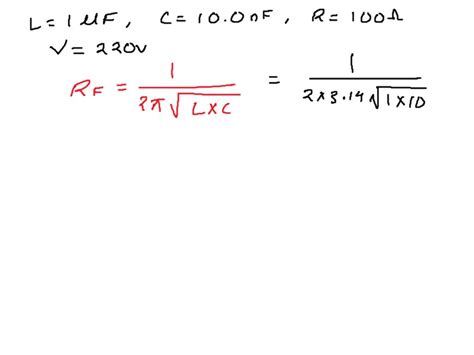 L = 1 µF, C = 10.0 nF, R = 100Ω
V = 220v
RF = 1 / 2π√LXC = 1 / 2x3.14√1x10